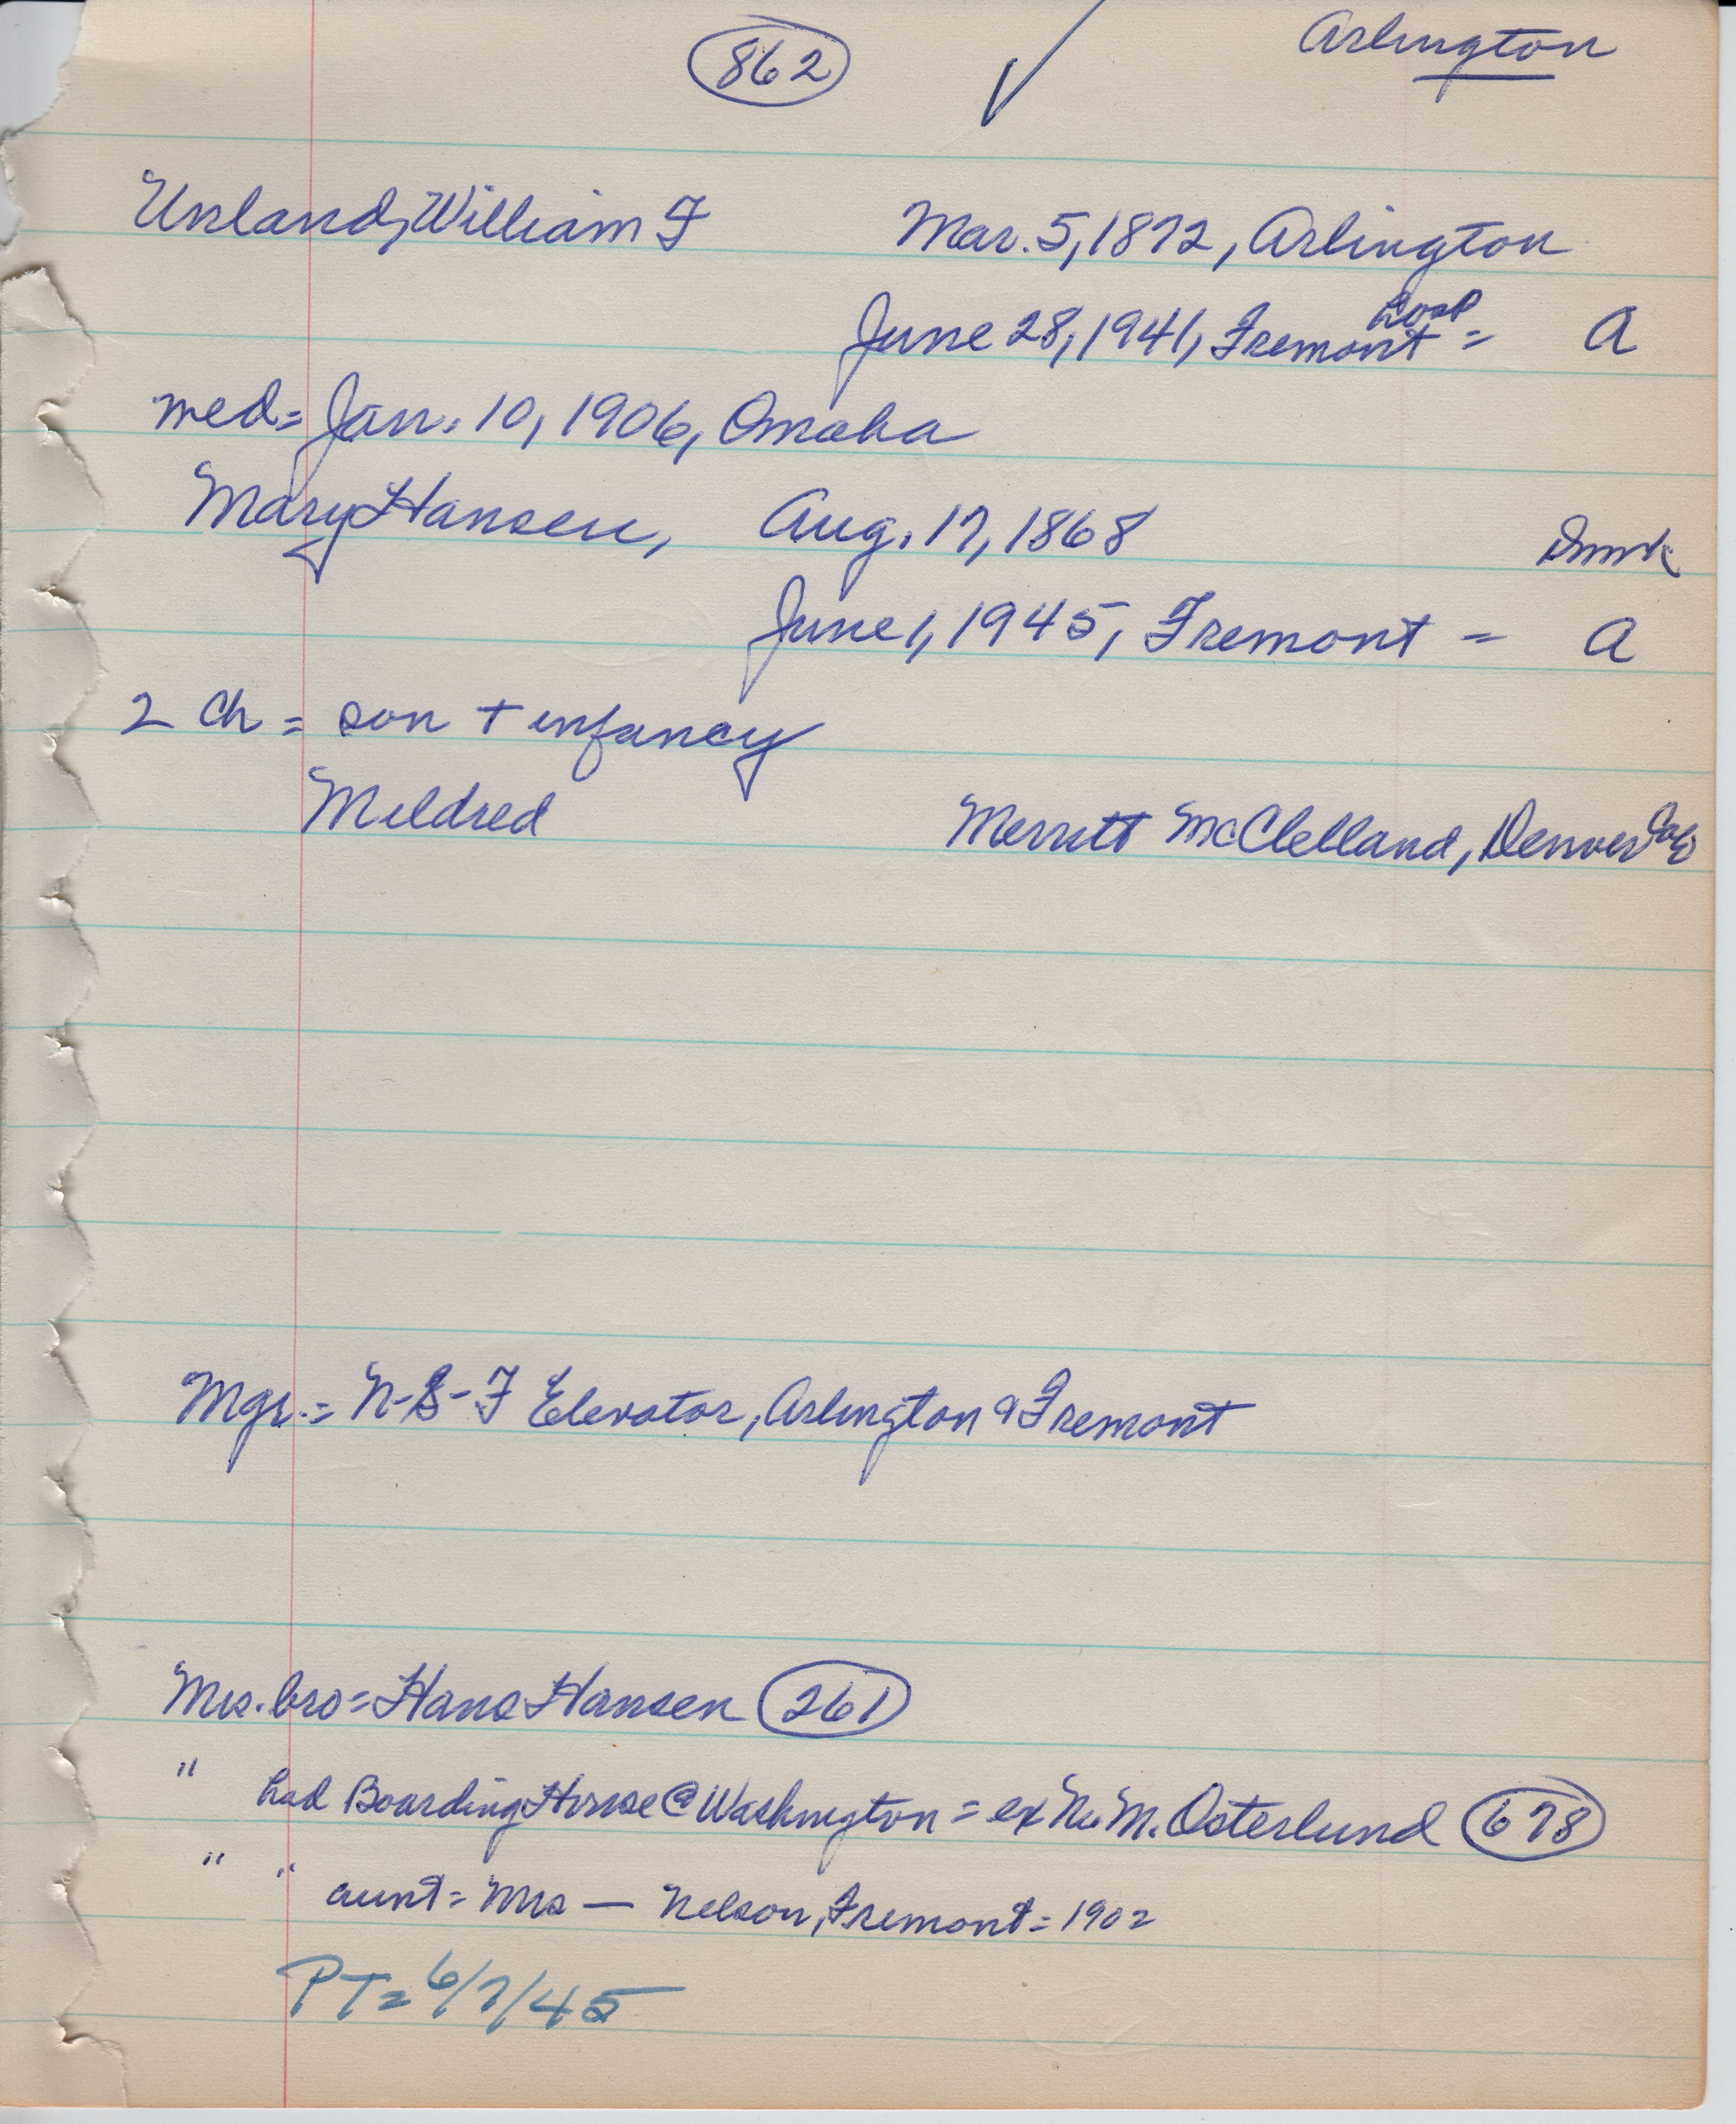 862 Arlington
Unland, William F Mar. 5, 1872, Arlington
June 28, 1941, Fremont hosp = A
med = Jan. 10, 1906, Omaha
Mary Hansen, Aug. 17, 1868 Dmrk
June 1, 1945, Fremont = A
2 Ch = son + infancy
Mildred Merritt McClelland, Denver Colo
Mgr. = N-S-F Elevator, Arlington & Fremont
Mrs. bro = Hans Hansen 261
" had Boarding House @ Washington = ex M. Osterlund 678
" " aunt = Mrs — Nelson, Fremont = 1902
PT = 6/7/45